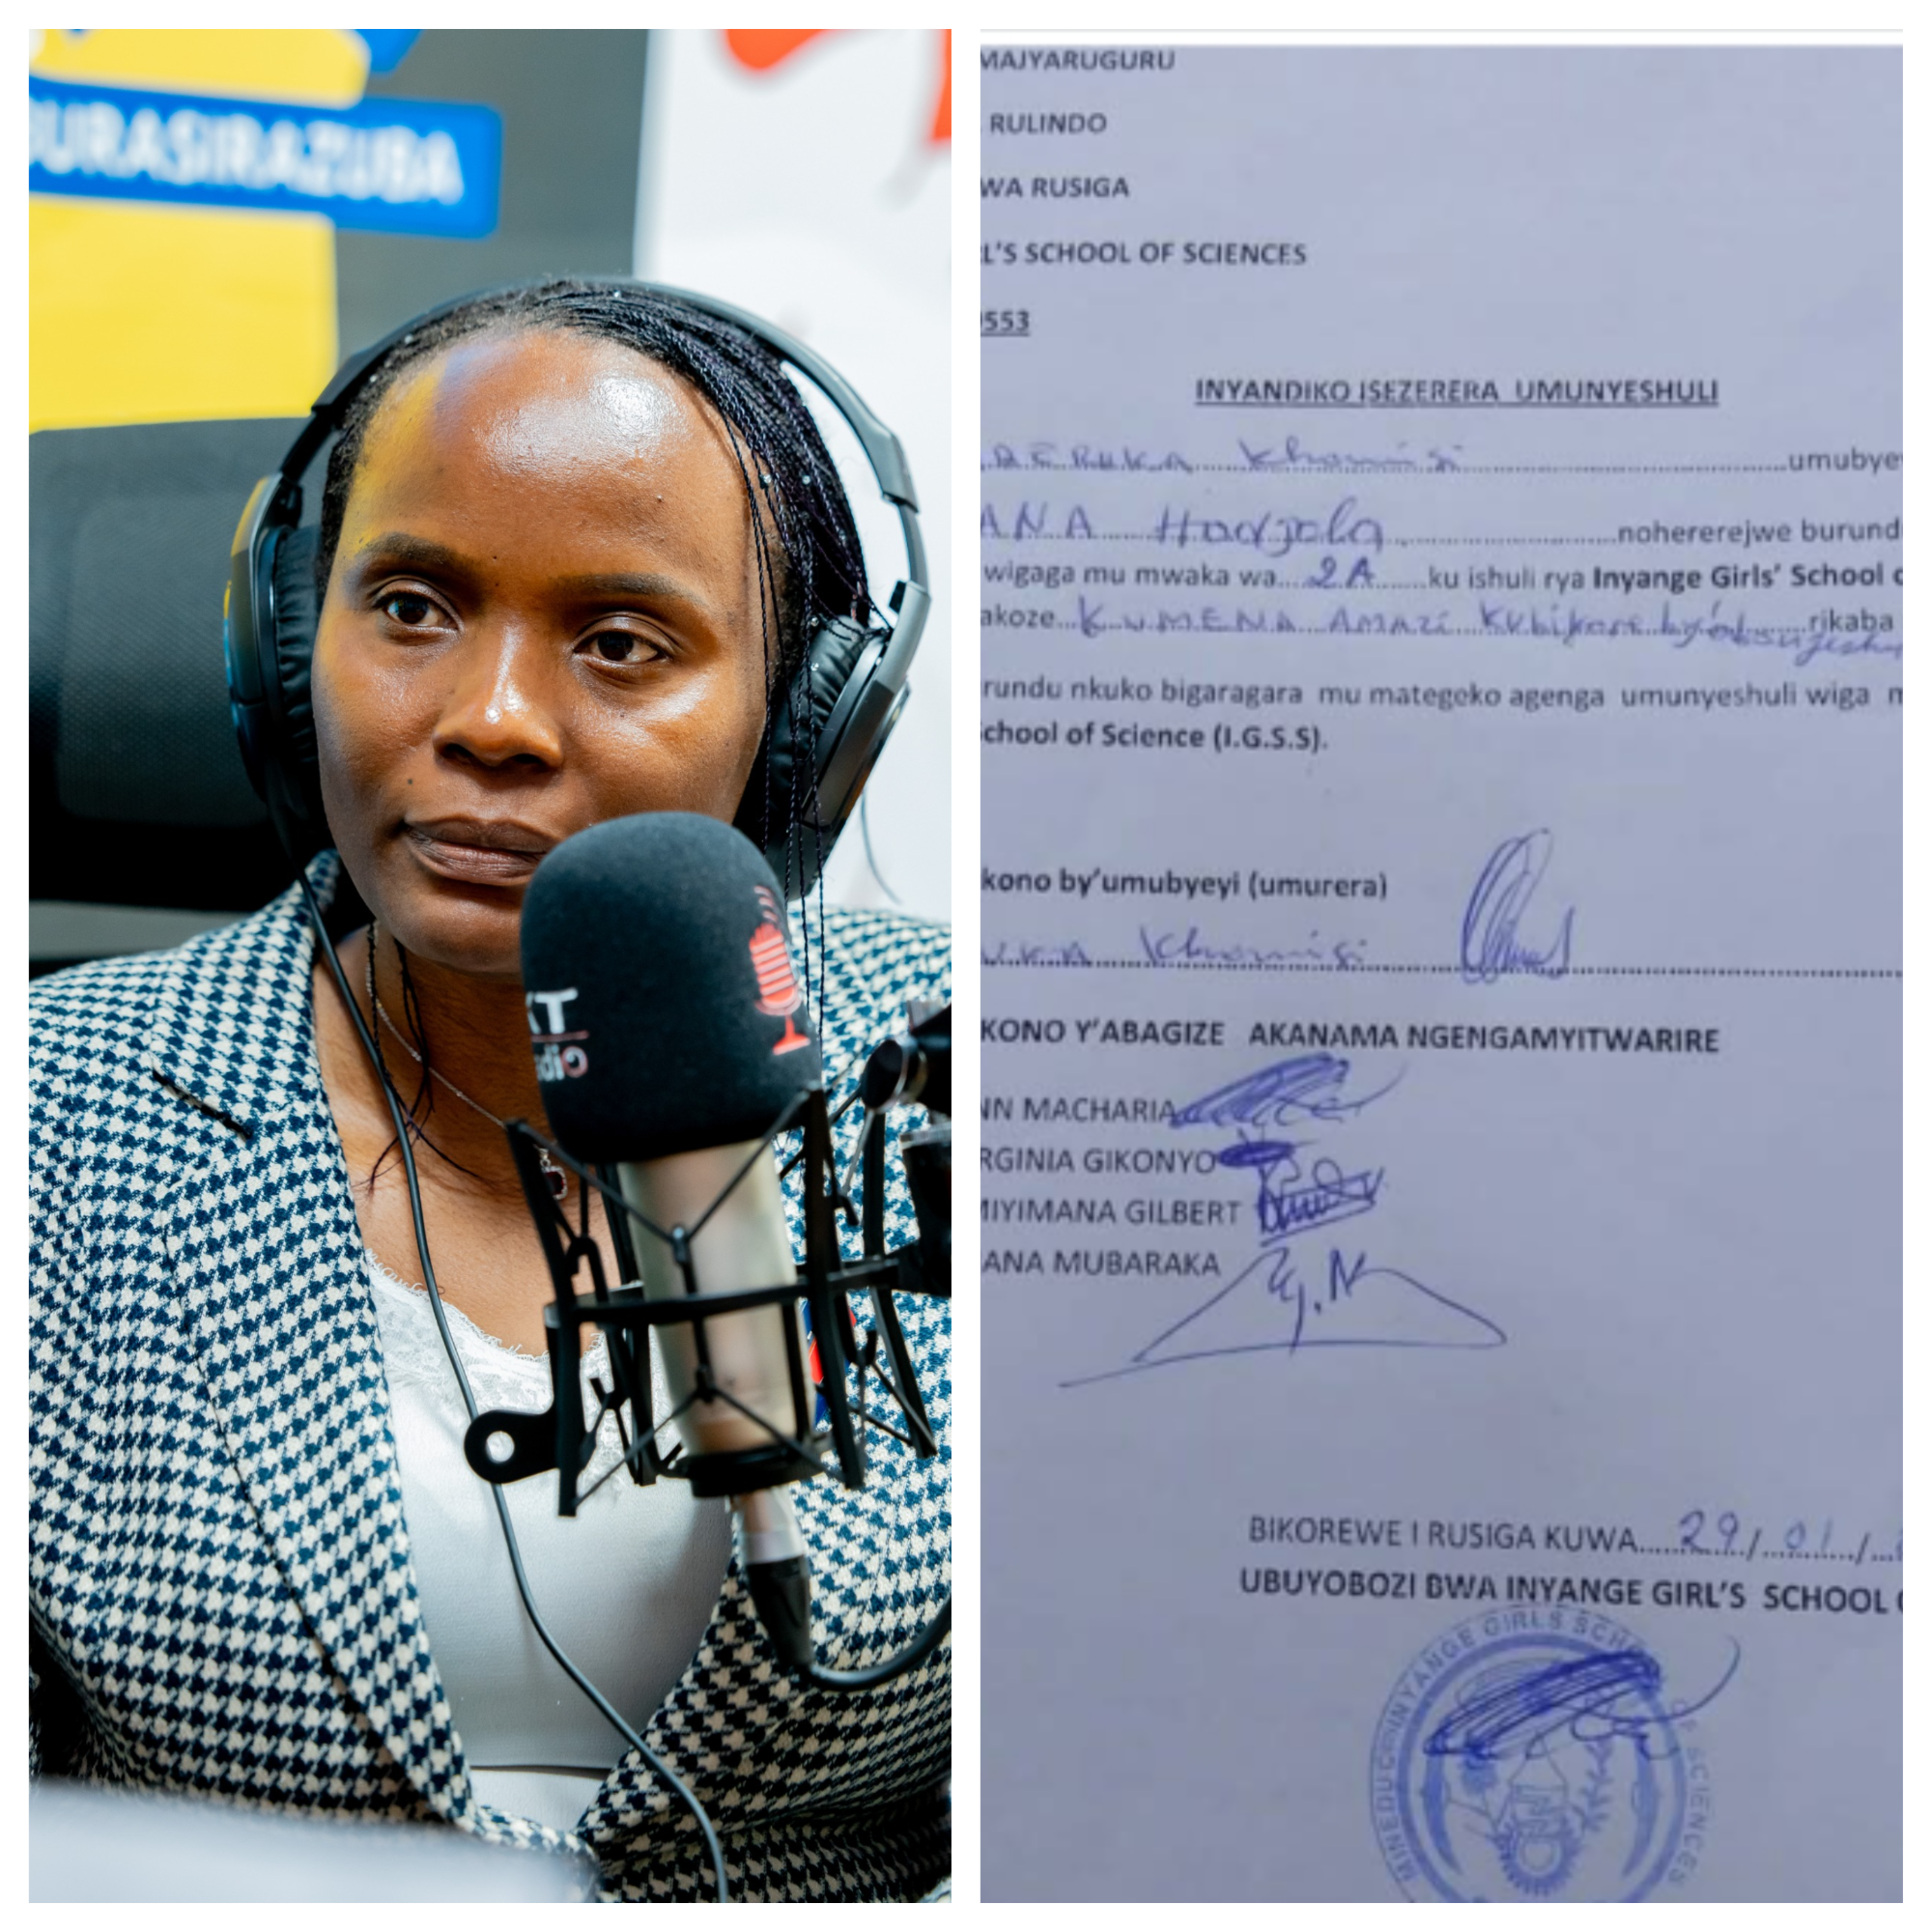 DURASIRAZUBA
XT
dio
MAJYARUGURU
RULINDO
WA RUSIGA
L'S SCHOOL OF SCIENCES
553
INYANDIKO ISEZERERA UMUNYESHULI
ERUKA Khamisi umubye
ANA nohererejwe burund
wigaga mu mwaka wa 2A ku ishuli rya Inyange Girls' School
akoze KUMENA AMAZI rikaba
rundu nkuko bigaragara mu mategeko agenga umunyeshuli wiga
School of Science (I.G.S.S).
kono by'umubyeyi (umurera)
UKA Khamisi
KONO Y'ABAGIZE AKANAMA NGENGAMYITWARIRE
NN MACHARIA
RGINIA GIKONYO
MIYIMANA GILBERT
ANA MUBARAKA
BIKOREWE I RUSIGA KUWA 29/01/
UBUYOBOZI BWA INYANGE GIRL'S SCHOOL
MINEDUC-INYANGE GIRLS SCHOOL OF SCIENCES